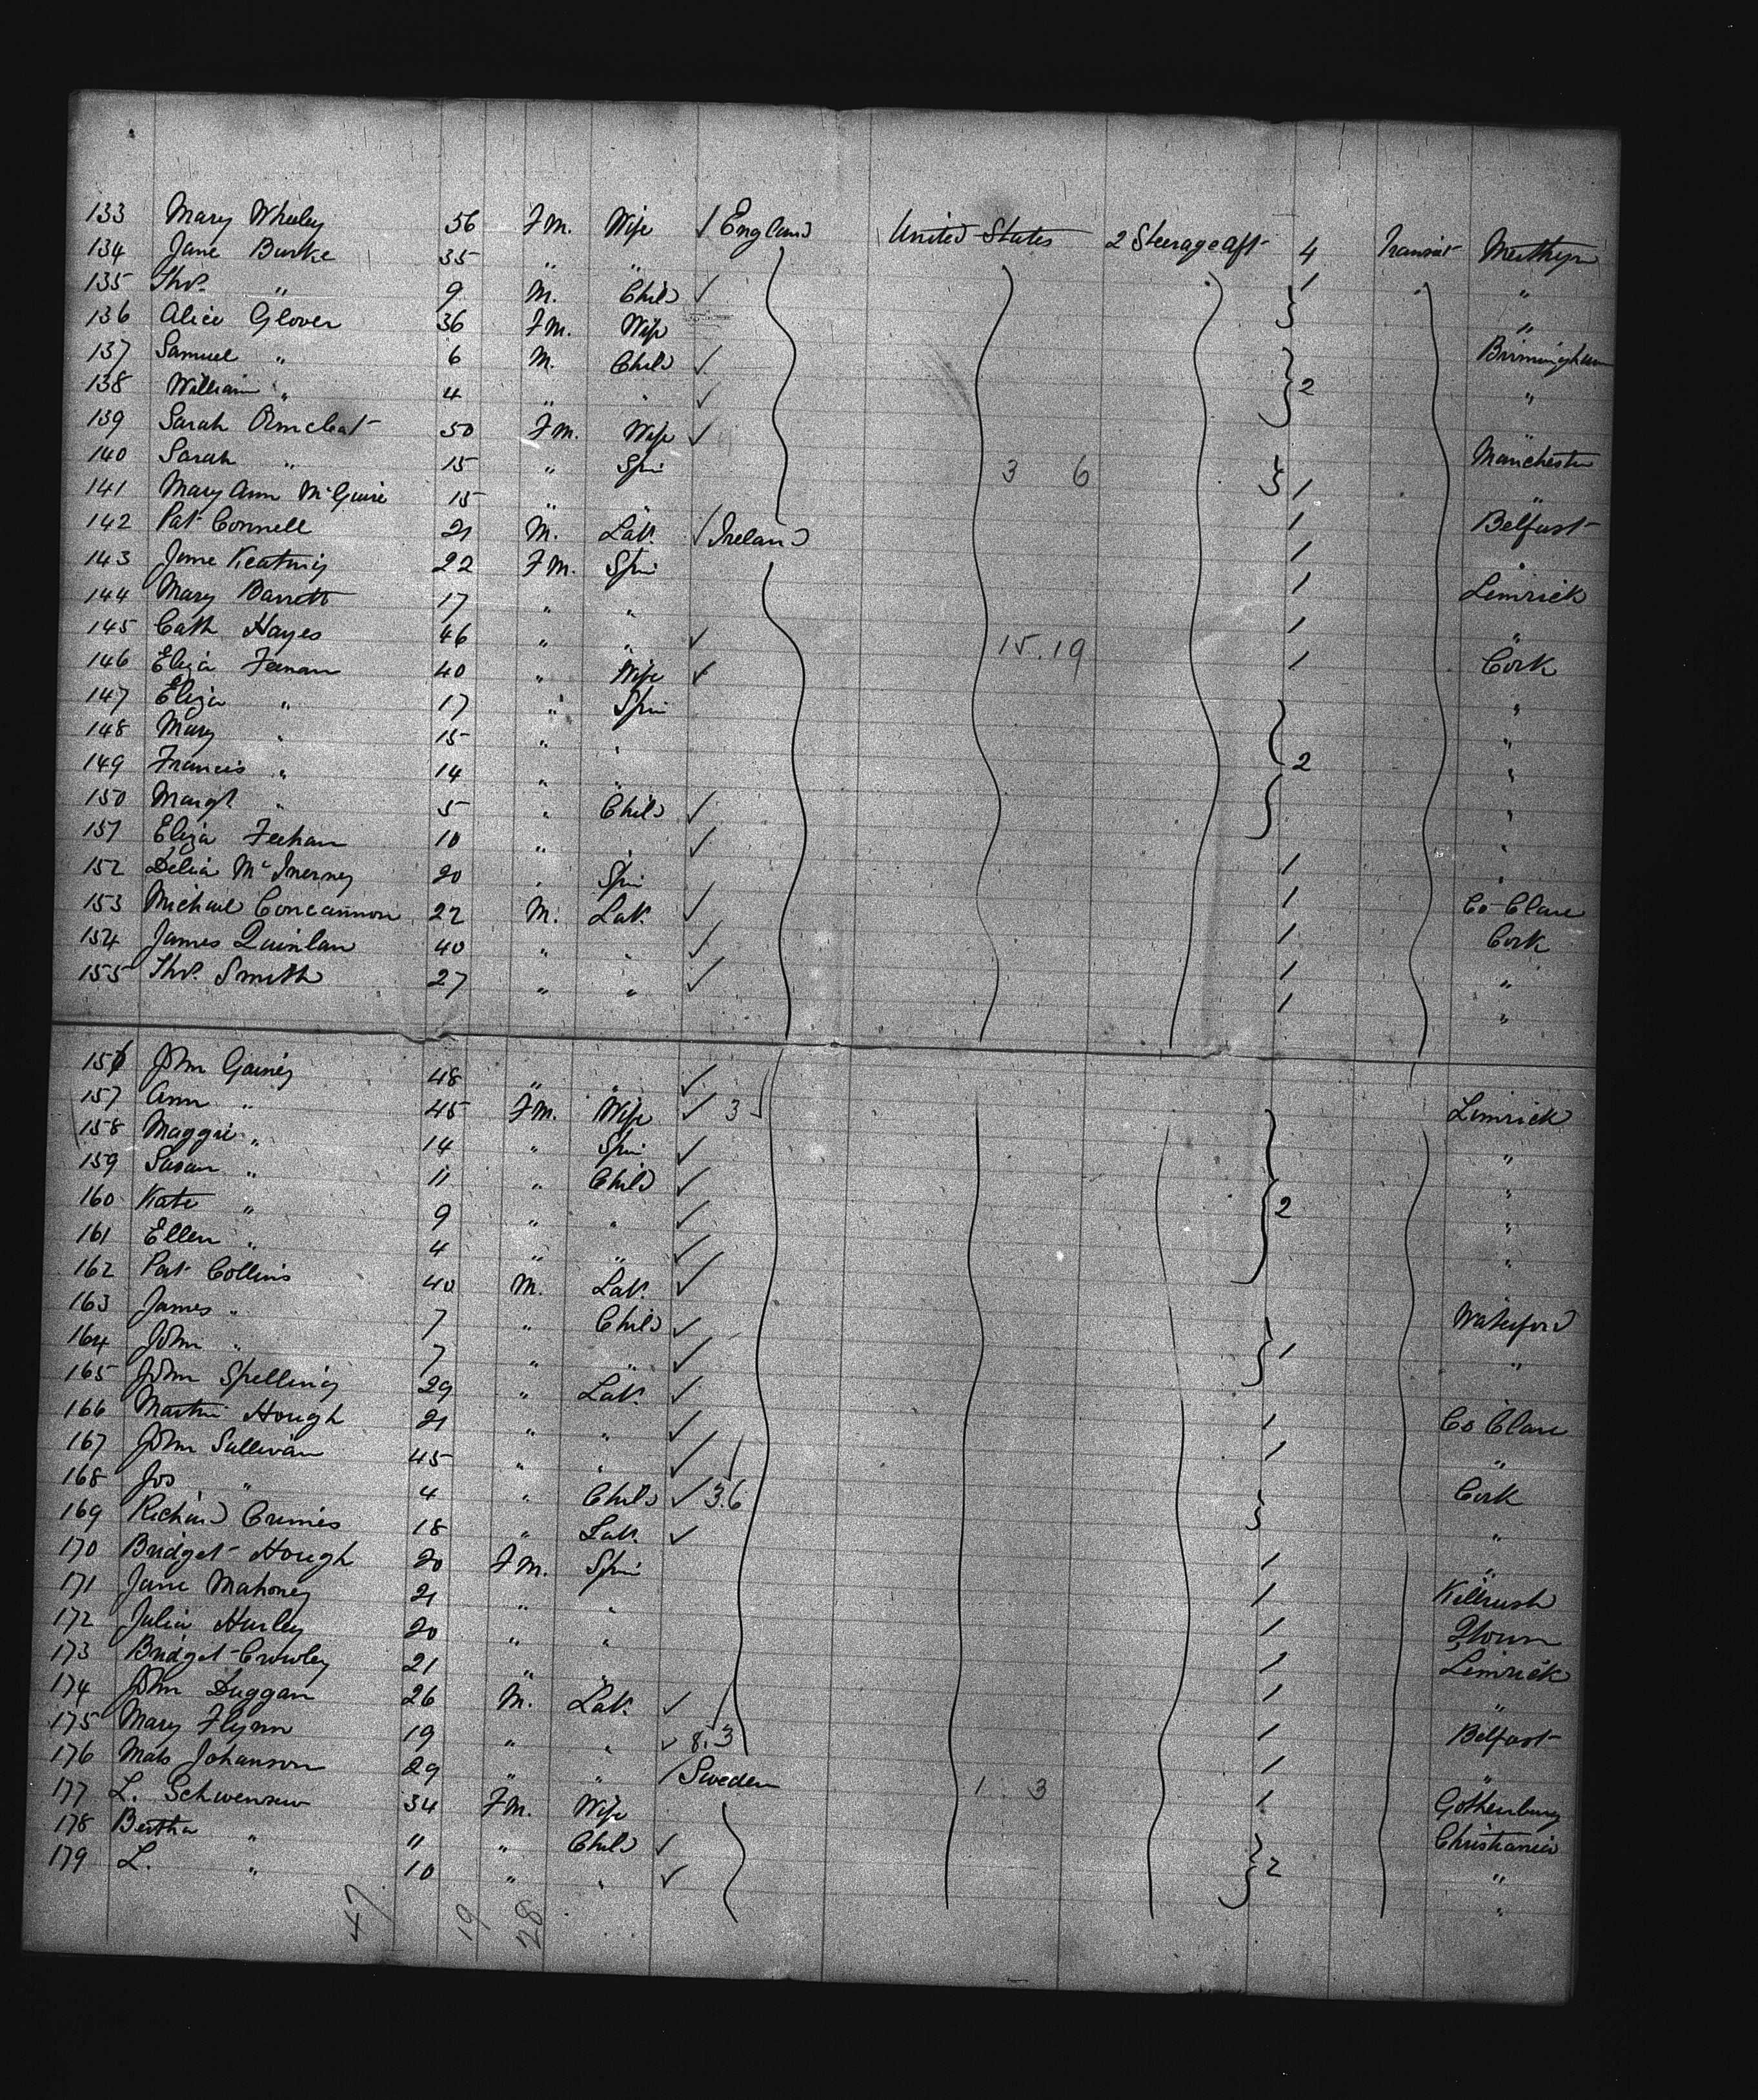 133 Mary Wheeley 56 Fm. Wife / England United States 2 Steerage aft 4 Transit Merthyr
134 Jane Burke 35 " " 1 "
135 Thos. " 9 M. Child ✓ "
136 Alice Glover 36 Fm. Wife Birmingham
137 Samuel " 6 M. Child ✓ 2 "
138 William " 4 " " ✓
139 Sarah 50 Fm. Wife ✓ Manchester
140 Sarah " 15 " Spin 3 6 1 "
141 Mary Ann McGuire 15 " " 1 Belfast
142 Pat Connell 21 M. Lab. / Ireland 1 "
143 Jane Keating 22 Fm. Spin 1 Limrick
144 Mary Barrett 17 " " 1 "
145 Cath Hayes 46 " " ✓ 15.19 1 Cork
146 Eliza Feenan 40 " Wife ✓ "
147 Eliza " 17 " Spin "
148 Mary " 15 " " 2 "
149 Francis " 14 " " "
150 Margt " 5 " Child ✓ "
151 Eliza Feehan 10 " " ✓ 1 "
152 Delia McInerney 20 " Spin 1 Co Clare
153 Michael Concannon 22 M. Lab. ✓ 1 Cork
154 James Quinlan 40 " " ✓ 1 "
155 Thos. Smith 27 " " ✓ 1 "
156 John Gainey 48 " " ✓ Limrick
157 Ann " 45 Fm. Wife ✓ 3 "
158 Maggie " 14 " Spin ✓ "
159 Susan " 11 " Child ✓ 2 "
160 Kate " 9 " " ✓ "
161 Ellen " 4 " " ✓
162 Pat Collins 40 M. Lab. ✓ Waterford
163 James " 7 " Child ✓ 1 "
164 John " 7 " " ✓
165 John Spelling 29 " Lab. ✓ 1 Co Clare
166 Martin Hough 21 " " ✓ 1 "
167 John Sullivan 45 " " ✓ Cork
168 Jos " 4 " Child ✓ 3.6 "
169 Richard Crimes 18 " Lab. ✓ 1 "
170 Bridget Hough 20 Fm. Spin 1 Killrush
171 Jane Mahoney 21 " " 1
172 Julia Hurley 20 " " 1 Limrick
173 Bridget Crowley 21 " " 1 "
174 John Duggan 26 M. Lab. ✓ 1 Belfast
175 Mary Flynn 19 " " ✓ 8.3 1 "
176 Mats Johanson 29 " " / Sweden 1 3 1 Gothenburg
177 L. 34 Fm. Wife Christiania
178 Bertha " 11 " Child ✓ 2 "
179 L. " 10 " " ✓ "
47 19 28